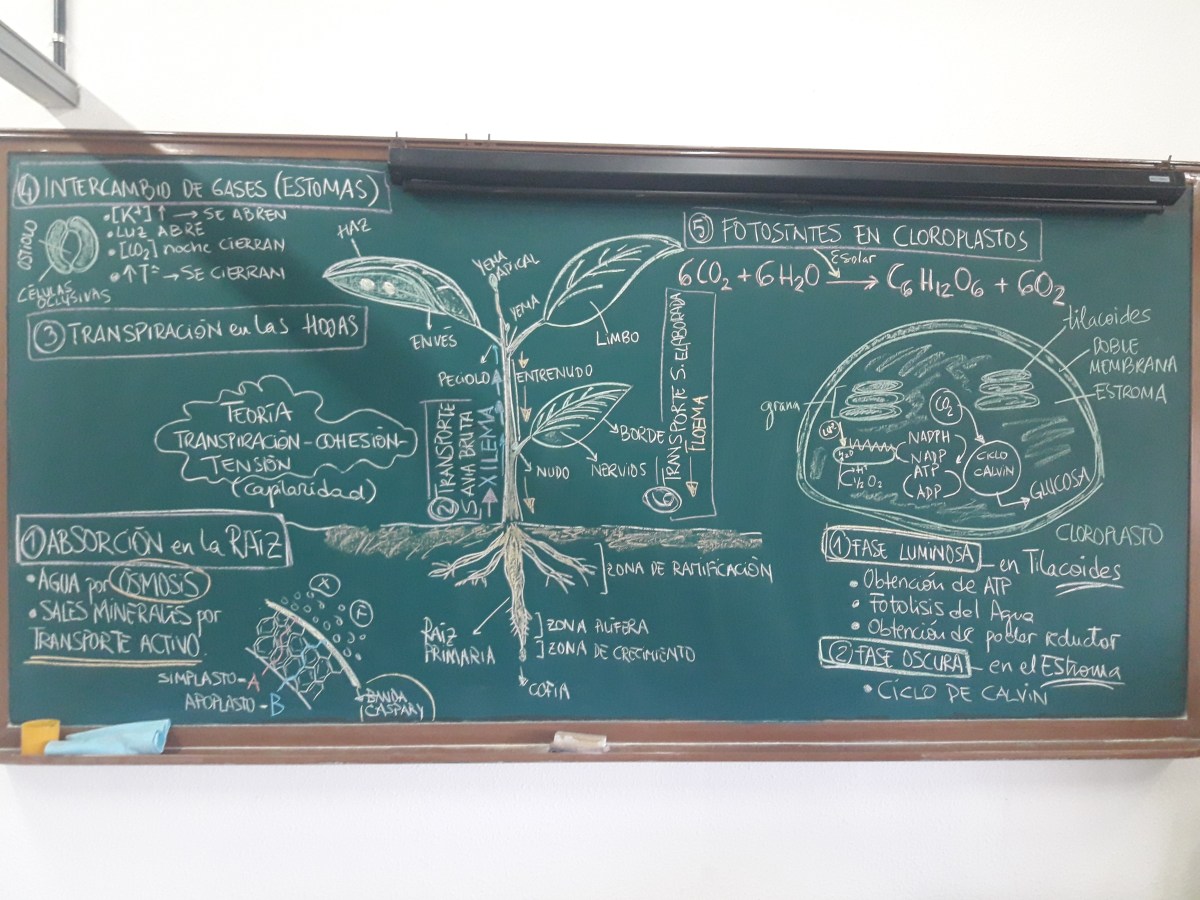 ④ INTERCAMBIO DE GASES (ESTOMAS)
OSTIOLO
• [K+] ↑ → SE ABREN
• LUZ ABRE
• [CO2] noche CIERRAN
• ↑Tª → SE CIERRAN
CÉLULAS
OCLUSIVAS
③ TRANSPIRACIÓN en las HOJAS
TEORÍA
TRANSPIRACIÓN-COHESIÓN-
TENSIÓN
(capilaridad)
① ABSORCIÓN en la RAÍZ
• AGUA por ÓSMOSIS
• SALES MINERALES por
TRANSPORTE ACTIVO.
SIMPLASTO - A
APOPLASTO - B
BANDA
CASPARY
HAZ
YEMA
APICAL
YEMA
ENVÉS
LIMBO
PECIOLO
ENTRENUDO
② TRANSPORTE
SAVIA BRUTA
XILEMA
BORDE
NUDO
NERVIOS
⑥ TRANSPORTE S. ELABORADA
FLOEMA
ZONA DE RAMIFICACIÓN
RAÍZ
PRIMARIA
ZONA PILÍFERA
ZONA DE CRECIMIENTO
COFIA
⑤ FOTOSÍNTES EN CLOROPLASTOS
Esolar
6CO2 + 6H2O → C6H12O6 + 6O2
tilacoides
DOBLE
MEMBRANA
ESTROMA
grana
CO2
LUZ
H2O
NADPH
NADP
ATP
ADP
½O2
CICLO
CALVIN
GLUCOSA
CLOROPLASTO
① FASE LUMINOSA - en Tilacoides
• Obtención de ATP
• Fotolisis del Agua
• Obtención de poder reductor
② FASE OSCURA - en el Estroma
• CICLO DE CALVIN